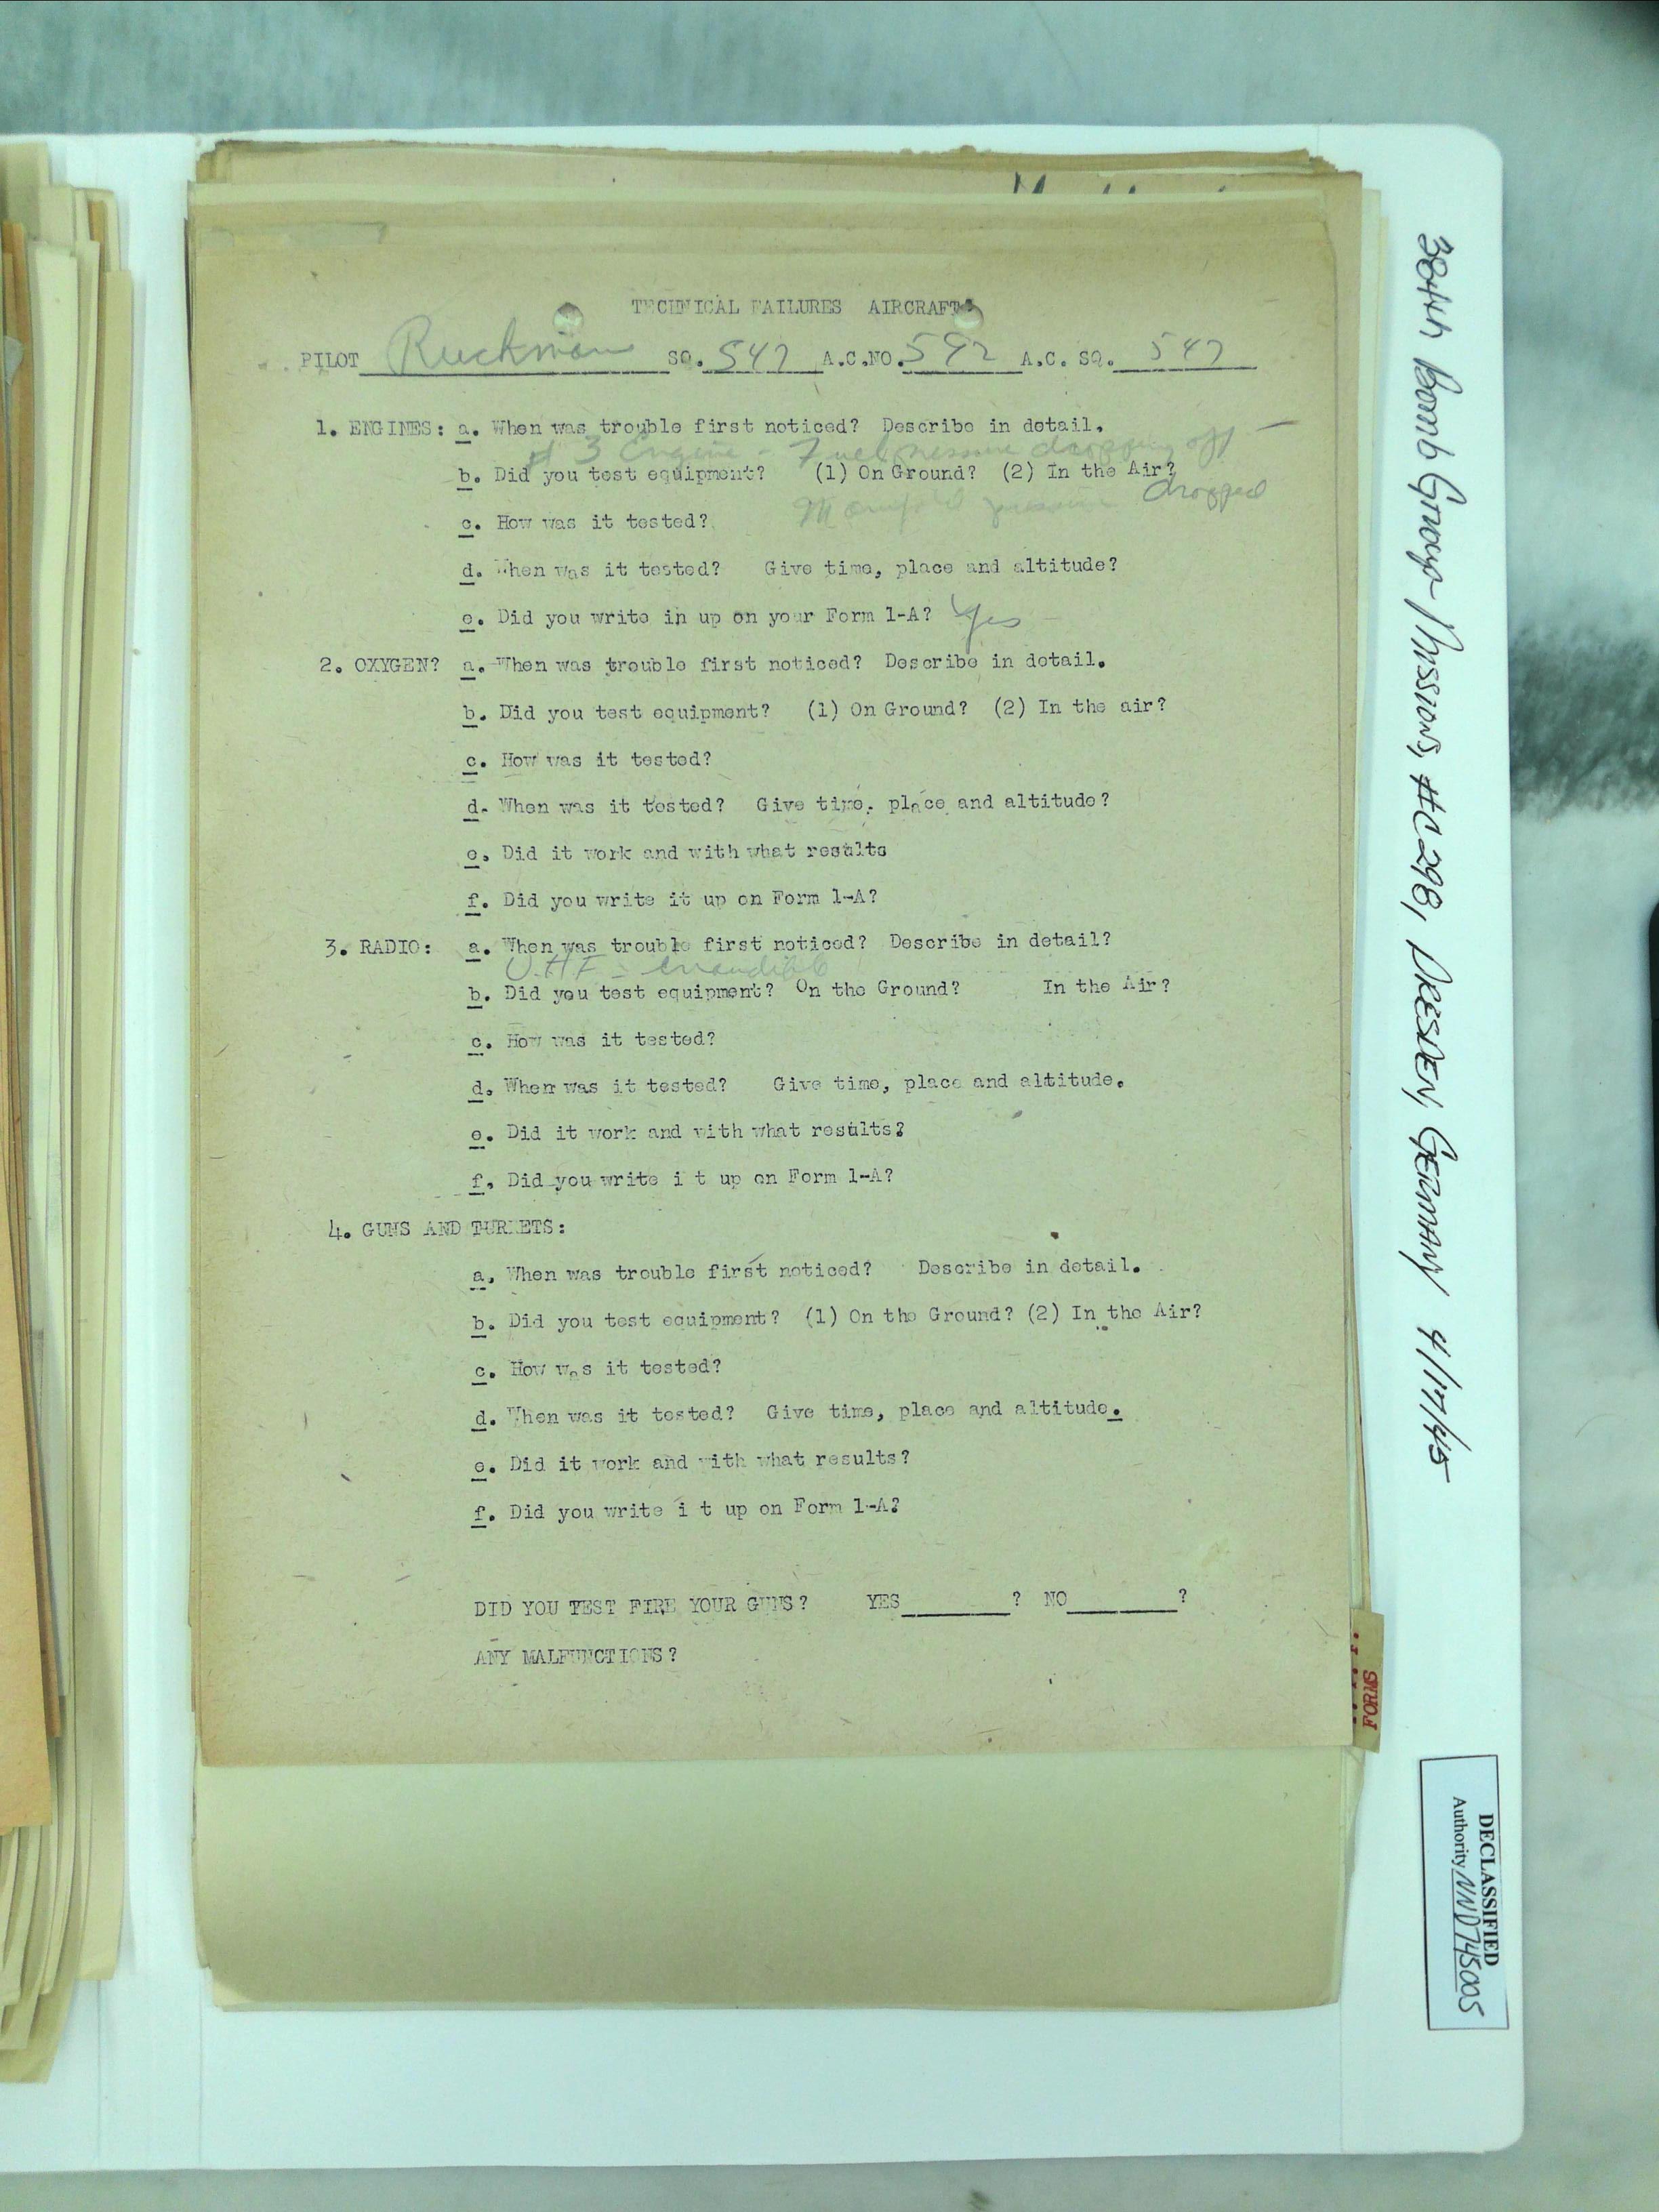 TECHNICAL FAILURES AIRCRAFT
PILOT Ruckman SQ. 547 A.C.NO. 592 A.C. SQ. 547
1. ENGINES: a. When was trouble first noticed? Describe in detail.
# 3 Engine - Fuel pressure dropping off
b. Did you test equipment? (1) On Ground? (2) In the Air?
Manifold pressure dropped
c. How was it tested?
d. When was it tested? Give time, place and altitude?
e. Did you write in up on your Form 1-A? Yes
2. OXYGEN? a. When was trouble first noticed? Describe in detail.
b. Did you test equipment? (1) On Ground? (2) In the air?
c. How was it tested?
d. When was it tested? Give time. place and altitude?
e. Did it work and with what results
f. Did you write it up on Form 1-A?
3. RADIO: a. When was trouble first noticed? Describe in detail?
b. Did you test equipment? On the Ground? In the Air?
c. How was it tested?
d. When was it tested? Give time, place and altitude.
e. Did it work and with what results?
f. Did you write i t up on Form 1-A?
4. GUNS AND TURRETS:
a. When was trouble first noticed? Describe in detail.
b. Did you test equipment? (1) On the Ground? (2) In the Air?
c. How was it tested?
d. When was it tested? Give time, place and altitude.
e. Did it work and with what results?
f. Did you write i t up on Form 1-A?
DID YOU TEST FIRE YOUR GUNS? YES ? NO ?
ANY MALFUNCTIONS?
FORMS
384th Bomb Group - Missions, #C298, DRESDEN, GERMANY 4/17/45
DECLASSIFIED
Authority NND745005